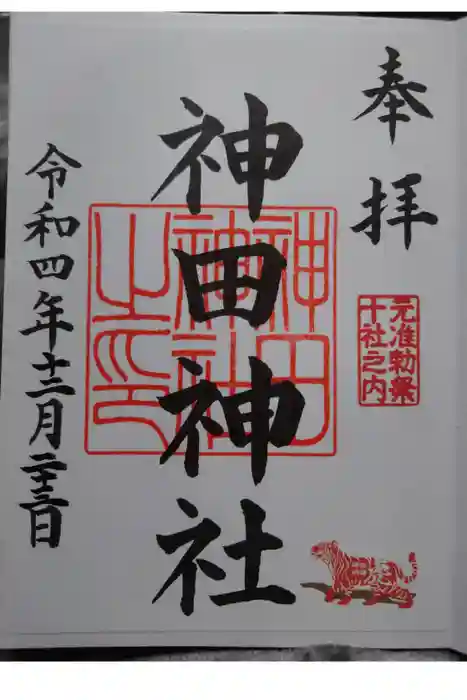 奉拝
元准勅祭
十社之内
神田神社
神田
神社
之印
令和四年十二月二十三日